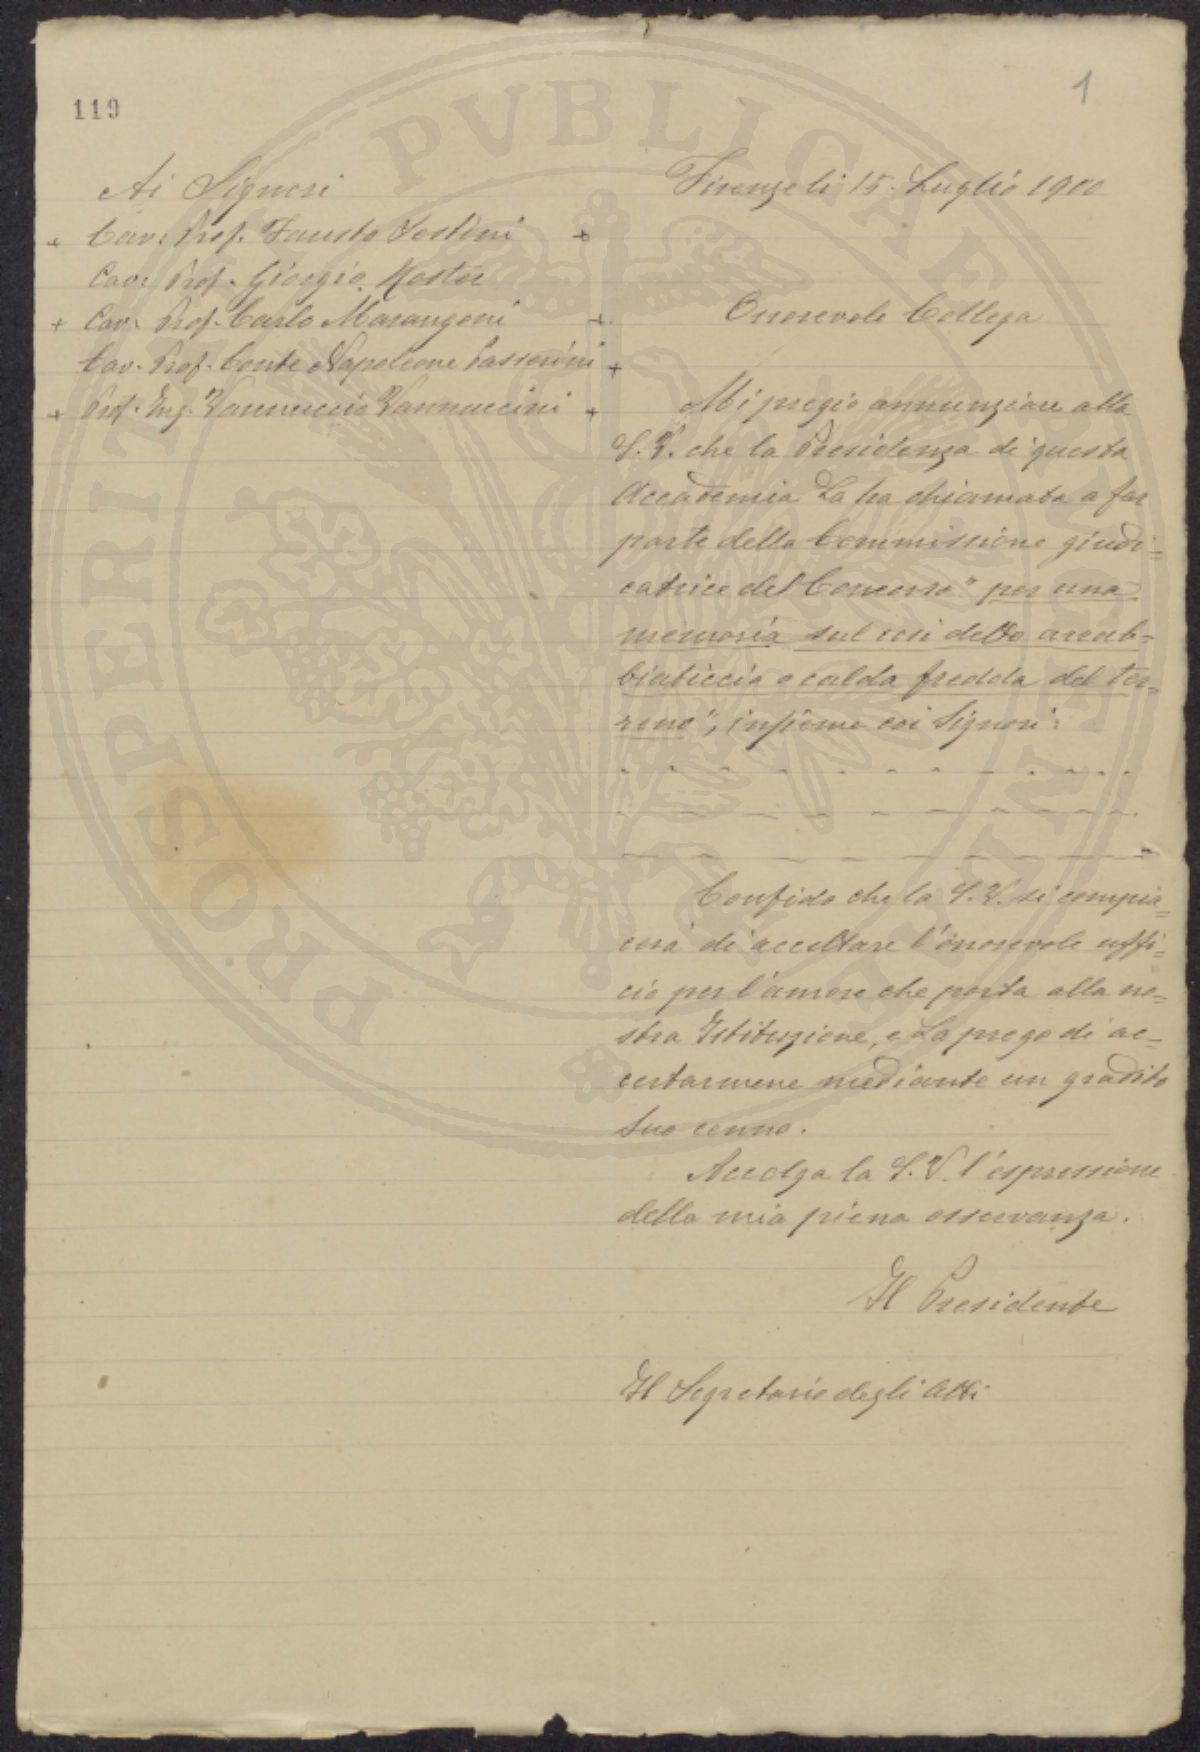 119
1
Ai Signori
+ Cav. Prof. Fausto Sestini +
Cav. Prof. Giorgio Roster
+ Cav. Prof. Carlo Marangoni +
Cav. Prof. Conte Napoleone Passerini +
+ Prof. Ing. Vannuccio Vannuccini +
Firenze li 15 Luglio 1900
Onorevole Collega
Mi pregio annunziare alla
S. V. che la Presidenza di questa
Accademia La ha chiamata a far
parte della Commissione giudi=
catrice del Concorso "per una
memoria sul così detto arrab=
biaticcio o calda fredda del ter=
reno", insieme coi Signori:
Confido che la S. V. si compia=
cerà di accettare l'onorevole uffi=
cio per l'amore che porta alla no=
stra Istituzione, e La prego di ac=
certarmene mediante un gradito
Suo cenno.
Accolga la S. V. l'espressione
della mia piena osservanza.
Il Presidente
Il Segretario degli Atti
PROSPERITATI PVBLICAE AVGENDAE